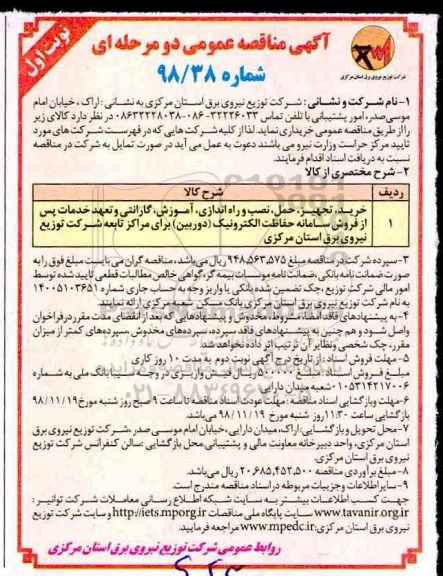 نوبت اول
آگهی مناقصه عمومی دو مرحله ای
شماره ۹۸/۳۸
شرکت توزیع نیروی برق استان مرکزی
۱- نام شرکت و نشانی : شرکت توزیع نیروی برق استان مرکزی به نشانی : اراک ، خیابان امام
موسی صدر، امور پشتیبانی با تلفن تماس ۳۲۲۲۶۰۳۳-۰۸۶ ۰۸۶۳۲۲۲۸۰۳۸ در نظر دارد کالای زیر
را از طریق مناقصه عمومی خریداری نماید. لذا از کلیه شرکت هایی که در فهرست شرکت های مورد
تایید مرکز حراست وزارت نیرو می باشند دعوت به عمل می آید در صورت تمایل به شرکت در مناقصه
نسبت به دریافت اسناد اقدام فرمایند.
۲- شرح مختصری از کالا
ردیف شرح کالا
خرید، تجهیز، حمل، نصب و راه اندازی، آموزش، گارانتی و تعهد خدمات پس
۱ از فروش سامانه حفاظت الکترونیک (دوربین) برای مراکز تابعه شرکت توزیع
نیروی برق استان مرکزی
۳- سپرده شرکت در مناقصه مبلغ ۹۴۸,۵۶۳,۵۷۵ ریال می باشد، مناقصه گران می بایست مبلغ فوق را به
صورت ضمانت نامه بانکی، ضمانت نامه موسسات بیمه گر، گواهی خالص مطالبات قطعی تایید شده توسط
امور مالی شرکت توزیع ، چک تضمین شده بانکی یا واریز وجه به حساب جاری شماره ۱۴۰۰۵۱۰۳۶۵۱
به نام شرکت توزیع نیروی برق استان مرکزی بانک مسکن شعبه مرکزی ارائه نمایند.
۴- به پیشنهادهای فاقد امضاء، مشروط، مخدوش و پیشنهادهایی که بعد از انقضای مدت مقرر در فراخوان
واصل شود و هم چنین به پیشنهادهای فاقد سپرده، سپرده های مخدوش، سپرده های کمتر از میزان
مقرر، چک شخصی ونظایر آن ترتیب اثر داده نخواهد شد.
۵- مهلت فروش اسناد : از تاریخ درج آگهی نوبت دوم به مدت ۱۰ روز کاری
مبلغ فروش اسناد : مبلغ ۵۰۰۰۰۰ ریال فیش واریزی در وجه سیبا بانک ملی به شماره
۰۱۰۵۳۱۴۲۱۷۰۰۶ شعبه میدان دارایی
۶- مهلت وبازگشایی اسناد مناقصه : مهلت عودت اسناد مناقصه تا ساعت ۹ صبح روز شنبه مورخ ۹۸/۱۱/۱۹
بازگشایی ساعت ۱۱:۳۰ روز شنبه مورخ ۹۸/۱۱/۱۹ می باشد.
۷- محل تحویل و بازگشایی : اراک، میدان دارایی، خیابان امام موسی صدر، شرکت توزیع نیروی برق
استان مرکزی، واحد دبیرخانه معاونت مالی و پشتیبانی محل بازگشایی : سالن کنفرانس شرکت توزیع
نیروی برق استان مرکزی.
۸- مبلغ برآوردی مناقصه ۲۰,۶۸۵,۴۵۲,۵۰۰ ریال می باشد.
۹- سایر اطلاعات و جزییات مربوطه در اسناد مناقصه مندرج است.
جهت کسب اطلاعات بیشتر به سایت شبکه اطلاع رسانی معاملات شرکت توانیر :
www.tavanir.org.ir سایت پایگاه ملی مناقصات http://iets.mporg.ir و سایت شرکت توزیع
نیروی برق استان مرکزی: www.mpedc.ir مراجعه فرمایید.
روابط عمومی شرکت توزیع نیروی برق استان مرکزی